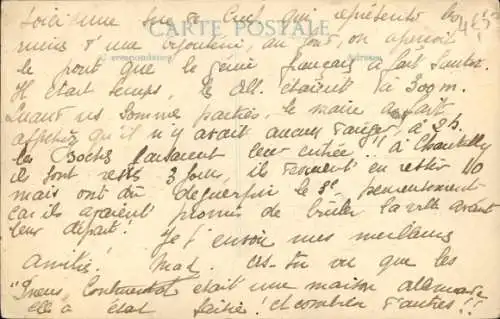 Voilà une vue de Creil qui représente les
ruines d'une bijouterie, au fond, on aperçoit
le pont que le génie français a fait sauter.
Il était temps, les All. étaient à 300 m.
Quand ns sommes parties, le maire a fait
afficher qu'il n'y avait aucun danger, à 2 h.
les Boches faisaient leur entrée!! à Chantilly
ils sont restés 3 jours, ils devaient en rester 10
mais ont dû déguerpir le 3e, heureusement
car ils avaient promis de brûler la ville avant
leur départ! Je t'envoie mes meilleures
amitiés! Mad. as-tu vu que les
"Pneus Continental" était une maison allemande
elle a été saisie! et combien d'autres!!
CARTE POSTALE
Correspondance
Adresse